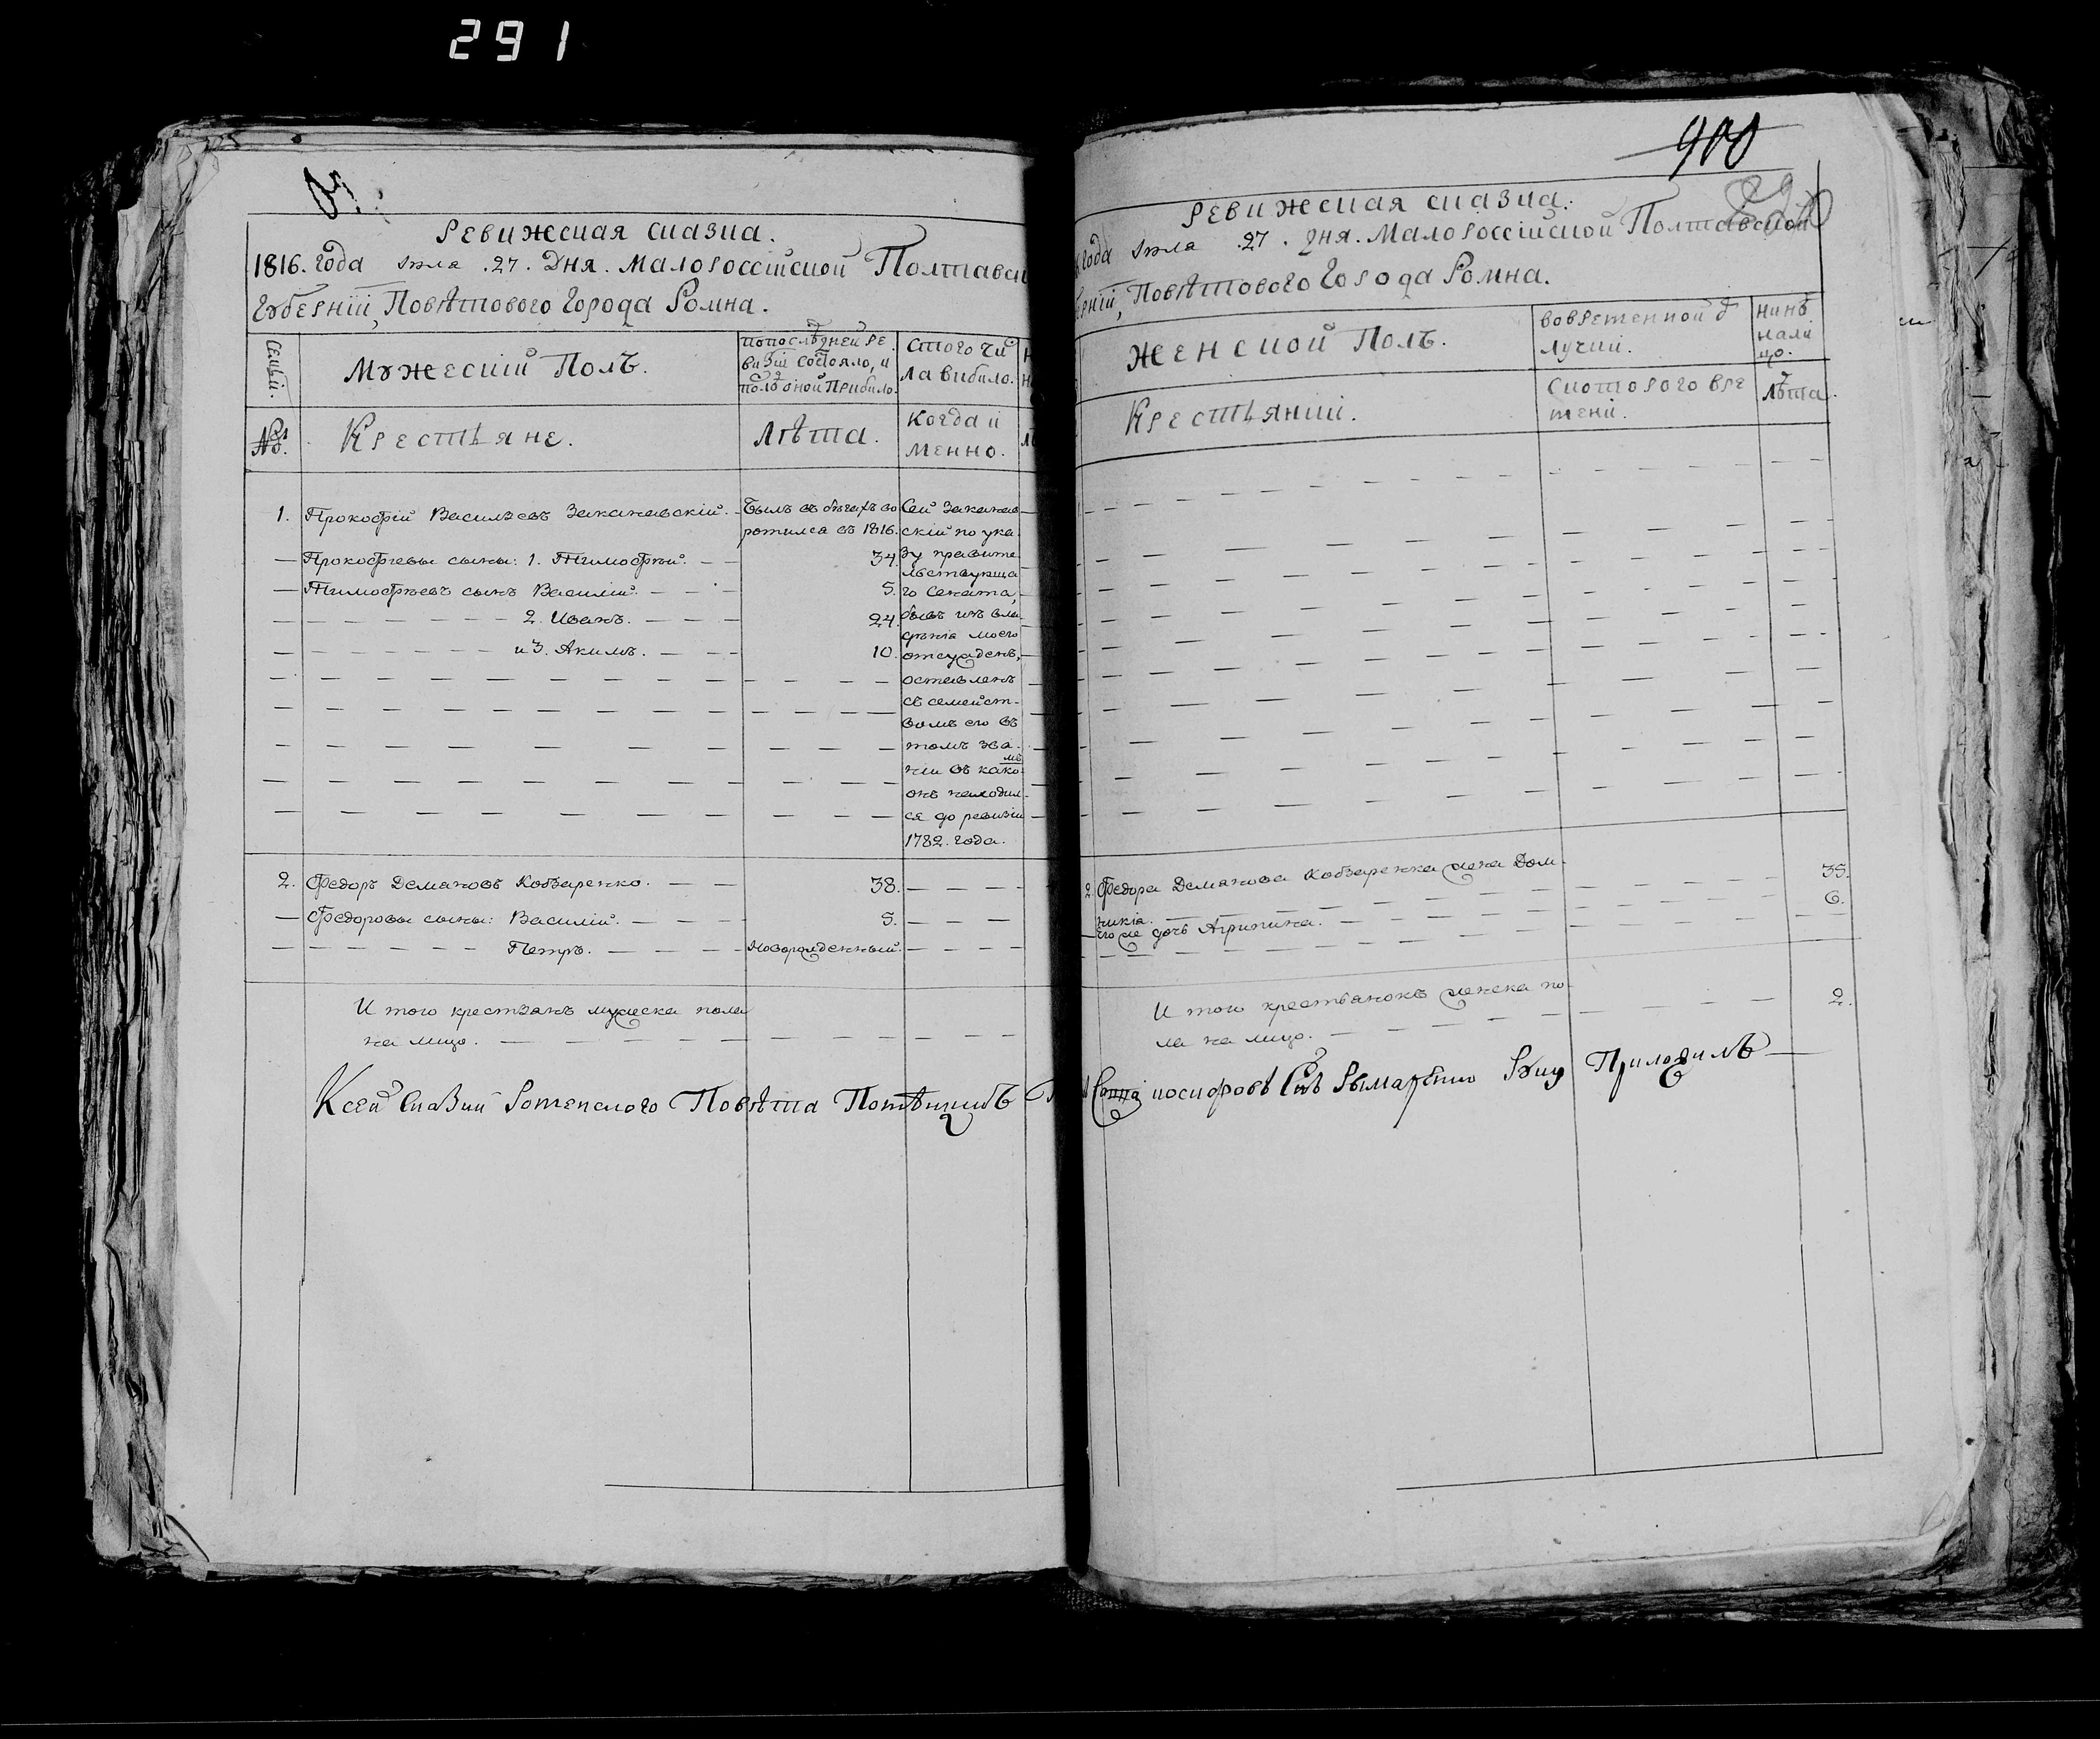 291
900
Ревижская сказка.
1816. года Іюла .27. Дня. Малороссійской Полтавск
Губерніи, Повѣтового Города Ромна.
Семьи.
Мужескій Полъ.
По последней ре
визіи состояло, и
после оной прибыло.
С того чи
ла выбыло.
№.
Крестьяне.
Лѣта.
Когда и
менно.
1. Прокофій Васильевъ Закачевскій.
Былъ въ бѣгахъ во
ротился въ 1816.
Сей Закачев
скій по ука
зу правите
льствующа
го Сената,
бывъ изъ вла
дѣнія моего
отсужденъ,
оставленъ
съ семейст-
вомъ его въ
томъ зва-
нии въ како
мъ
онъ находил-
ся до ревизіи
1782. года.
Прокофіевы сыны: 1. Тимофѣй. 34.
Тимофѣевъ сынъ Василій. 5.
2. Иванъ. 24.
и 3. Акимъ. 10.
2. Федоръ Демяновъ Кобзаренко. 38.
Федоровы сыны: Василій. 5.
Петръ. Новорожденный.
И того крестьянъ мужеска пола
на лицо.
Ксей Сказки Роменского Повѣта Помѣщикъ
Ревижская сказка.
года Іюла .27. дня. Малороссійской Полтавской
ерніи, Повѣтового Города Ромна.
Женской Полъ.
Во временной от
лучки.
Нинѣ
нали
цо.
Крестьянки.
С которого вре
мени.
Лѣта.
2. Федора Демянова Кобзаренка жена Дом-
никія. 35.
Его же дочь Агрипина. 6.
И того крестьянокъ женска по-
ла на лицо. 2.
иосифовъ Снъ Рымаренко Руку Приложилъ